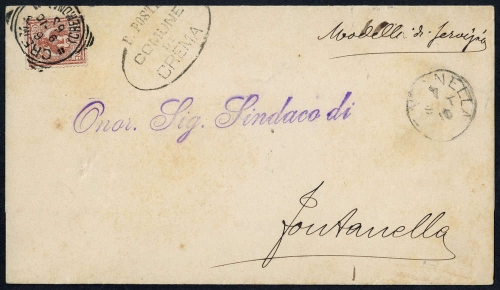 CREMA
(CREMONA)
COMUNE
DI
CREMA
Modelli di servizio
FONTANELLA
Onor. Sig. Sindaco di
Fontanella